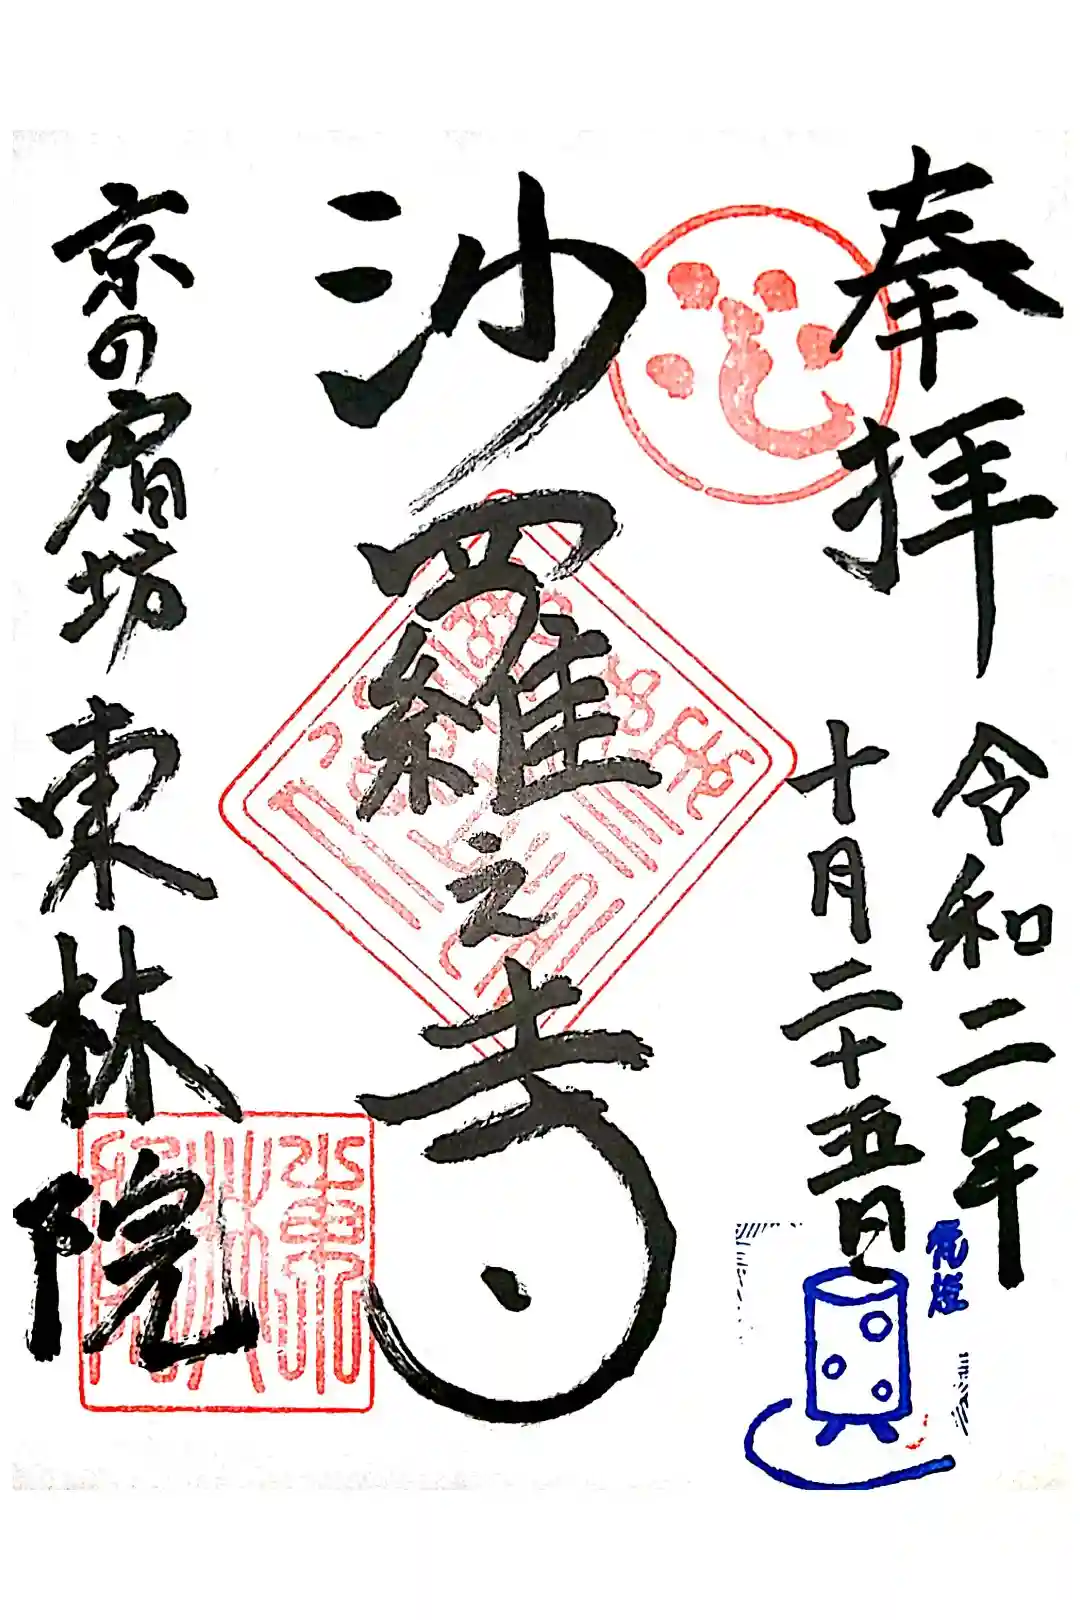 奉拝
令和二年
十月二十五日
心
沙羅之寺
京の宿坊
東林院
東林院